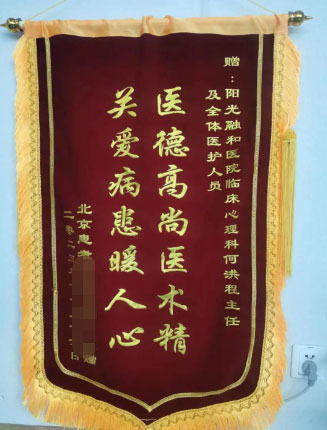 赠：阳光融和医院临床心理科何洪程主任
及全体医护人员
医德高尚医术精
关爱病患暖人心
北京患者
二零二